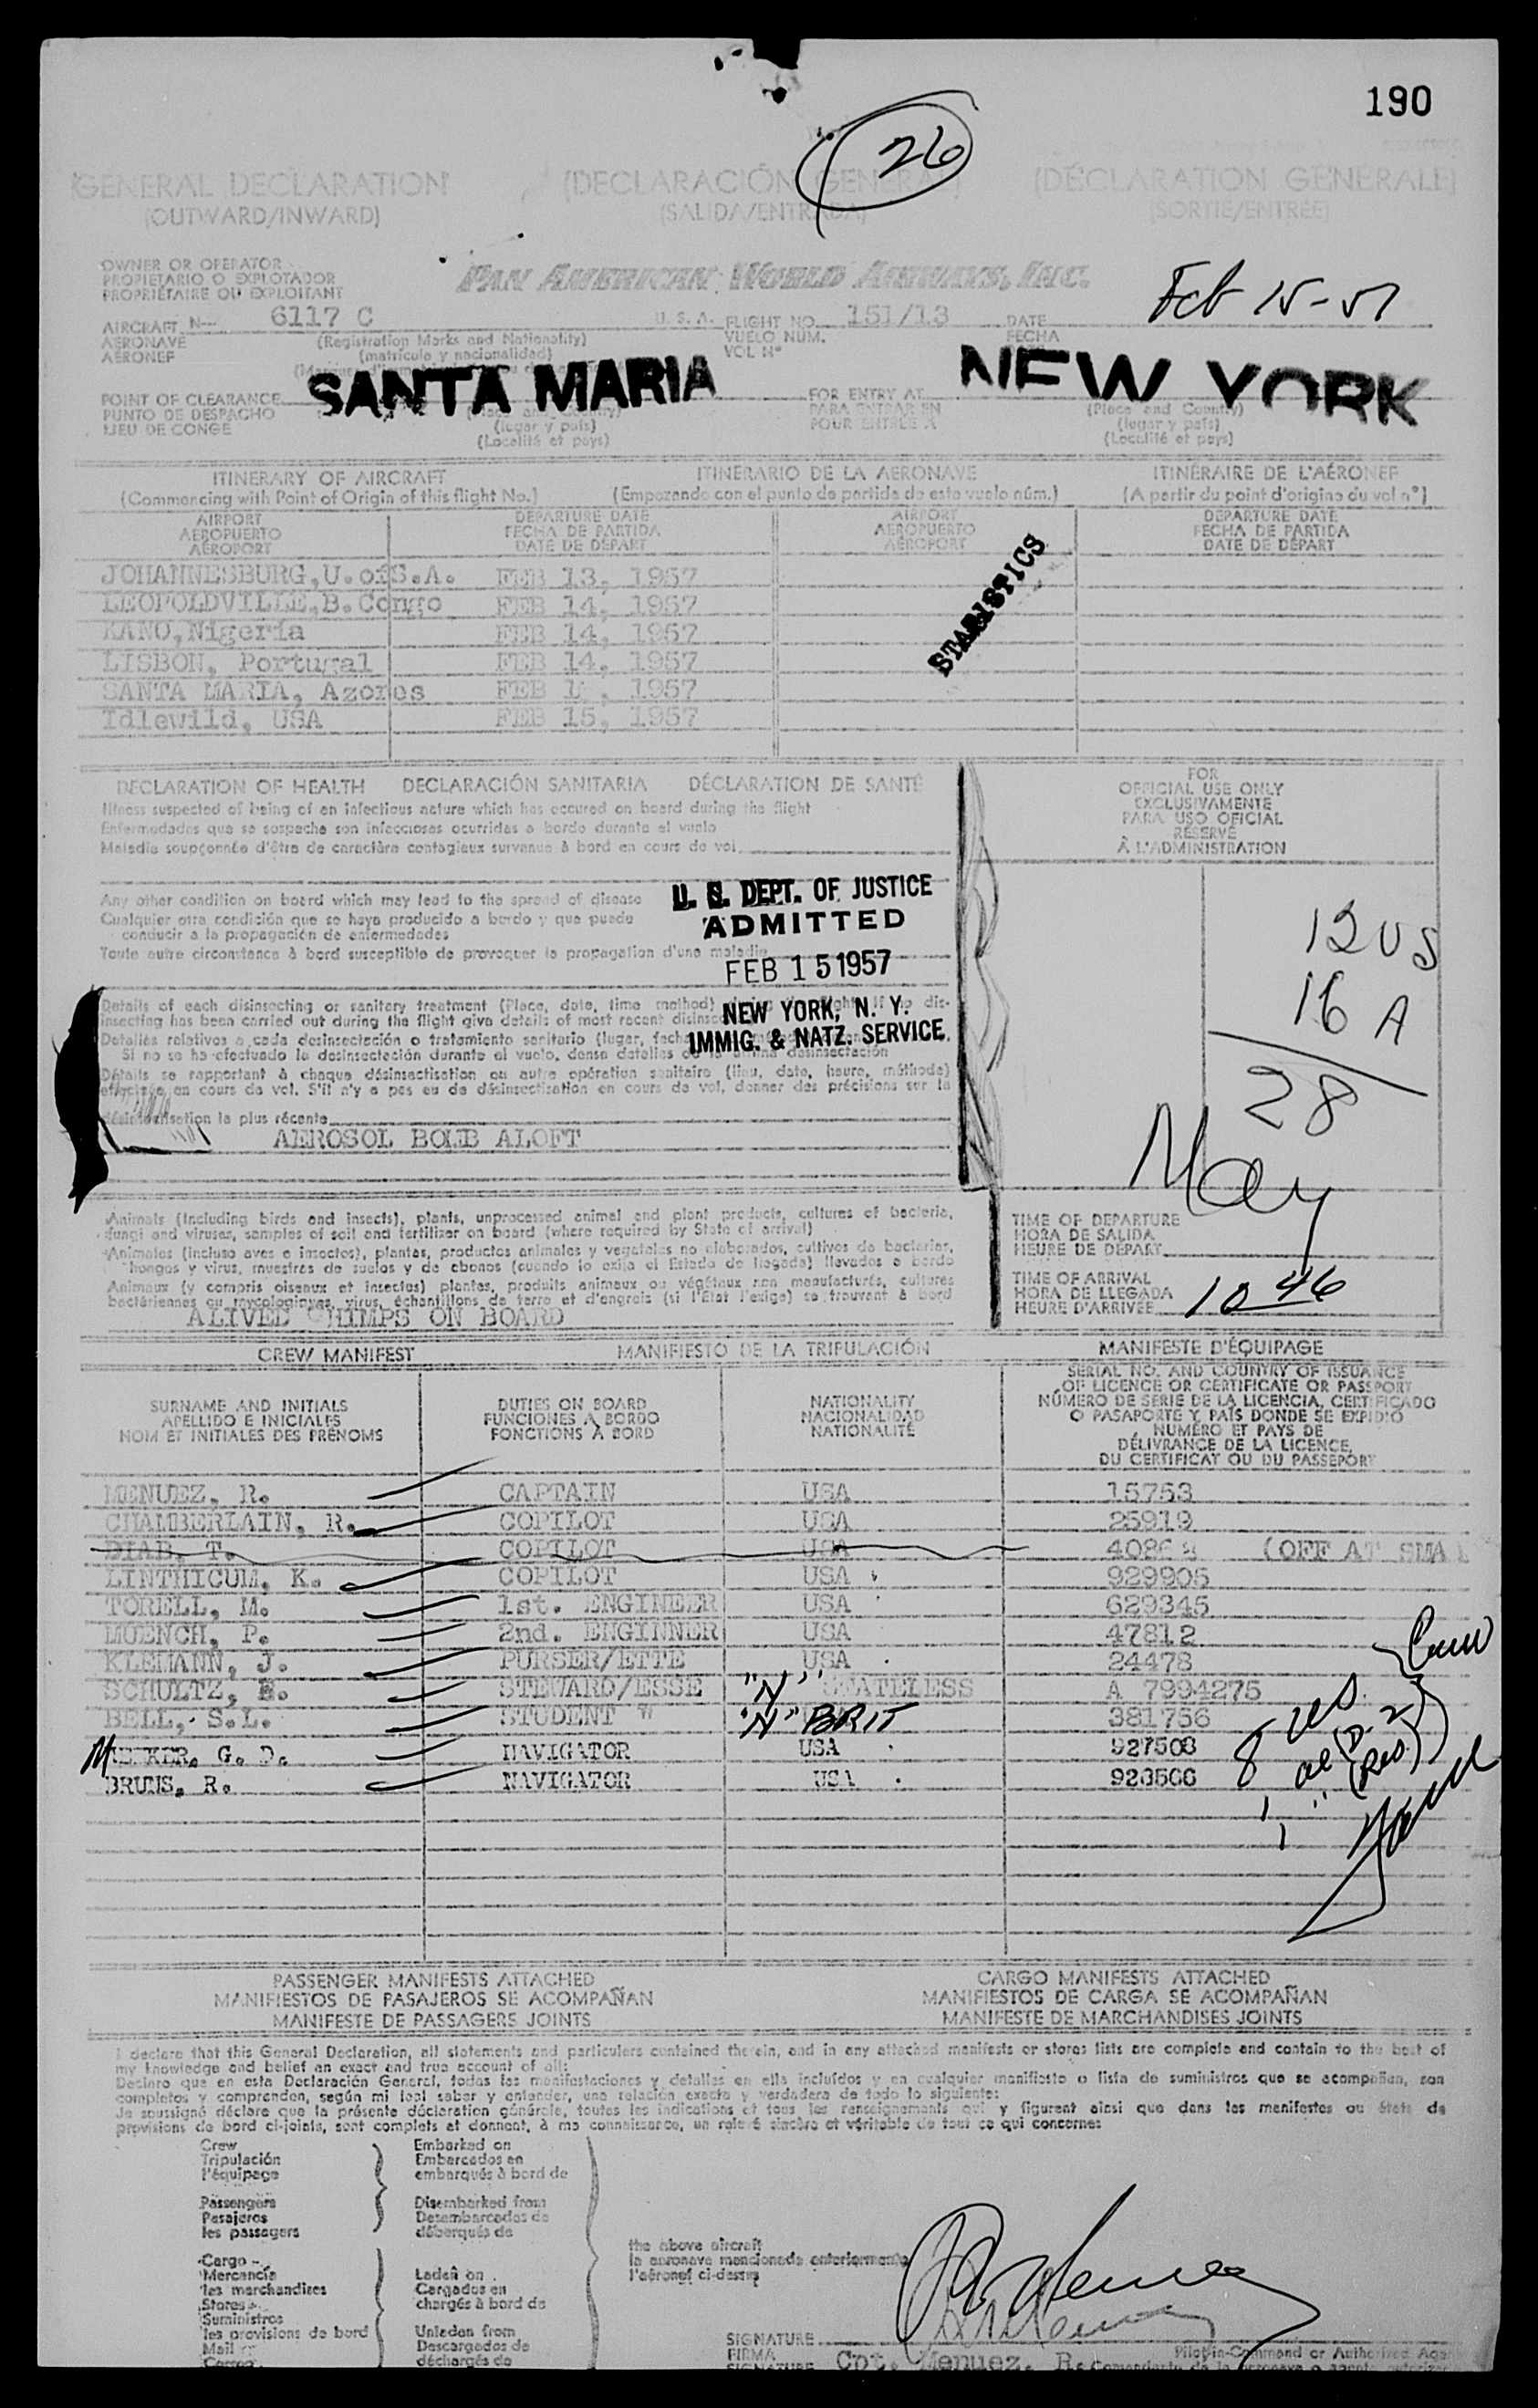 190
26
GENERAL DECLARATION (DECLARACIÓN GENERAL) (DÉCLARATION GENERALE)
(OUTWARD/INWARD) (SALIDA/ENTRADA) (SORTIE/ENTRÉE)
OWNER OR OPERATOR
PROPIETARIO O EXPLOTADOR
PROPRIÉTAIRE OU EXPLOITANT
PAN AMERICAN WORLD AIRWAYS, INC.
Feb 15-57
AIRCRAFT N— 6117 C U. S. A. FLIGHT NO. 151/13 DATE
AERONAVE (Registration Marks and Nationality) VUELO NÚM. FECHA
AÉRONEF (matrícula y nacionalidad) VOL Nº
SANTA MARIA NEW YORK
POINT OF CLEARANCE FOR ENTRY AT
PUNTO DE DESPACHO PARA ENTRAR EN (Place and Country)
LIEU DE CONGÉ (lugar y país) POUR ENTRÉE À (lugar y país)
(Localité et pays) (Localité et pays)
ITINERARY OF AIRCRAFT ITINERARIO DE LA AERONAVE ITINÉRAIRE DE L'AÉRONEF
(Commencing with Point of Origin of this flight No.) (Empezando con el punto de partida de este vuelo núm.) (A partir du point d'origine du vol nº)
AIRPORT DEPARTURE DATE AIRPORT DEPARTURE DATE
AEROPUERTO FECHA DE PARTIDA AEROPUERTO FECHA DE PARTIDA
AÉROPORT DATE DE DÉPART AÉROPORT DATE DE DÉPART
STATISTICS
JOHANNESBURG, U. of S.A. FEB 13, 1957
LEOPOLDVILLE, B. Congo FEB 14, 1957
KANO, Nigeria FEB 14, 1957
LISBON, Portugal FEB 14, 1957
SANTA MARIA, Azores FEB 1 , 1957
Idlewild, USA FEB 15, 1957
DECLARATION OF HEALTH DECLARACIÓN SANITARIA DÉCLARATION DE SANTÉ
Illness suspected of being of an infectious nature which has occured on board during the flight
Enfermedades que se sospecha son infecciosas ocurridas a bordo durante el vuelo
Maladie soupçonnée d'être de caractère contagieux survenue à bord en cours de vol
FOR
OFFICIAL USE ONLY
EXCLUSIVAMENTE
PARA USO OFICIAL
RÉSERVÉ
À L'ADMINISTRATION
Any other condition on board which may lead to the spread of disease
Cualquier otra condición que se haya producido a bordo y que puede
conducir a la propagación de enfermedades
Toute autre circonstance à bord susceptible de provoquer la propagation d'une maladie
U. S. DEPT. OF JUSTICE
ADMITTED
FEB 15 1957
NEW YORK, N. Y.
IMMIG. & NATZ. SERVICE
12 US
16 A
28
May
Details of each disinsecting or sanitary treatment (Place, date, time method) during the flight. If no dis-
insecting has been carried out during the flight give details of most recent
Detalles relativos a cada desinsectación o tratamiento sanitario (lugar, fecha
Si no se ha efectuado la desinsectación durante el vuelo, dense detalles de la última desinsectación
Détails se rapportant à chaque désinsectisation ou autre opération sanitaire (lieu, date, heure, méthode)
effectuée en cours de vol. S'il n'y a pas eu de désinsectisation en cours de vol, donner des précisions sur la
désinsectisation la plus récente
AEROSOL BOMB ALOFT
Animals (including birds and insects), plants, unprocessed animal and plant products, cultures of bacteria,
fungi and viruses, samples of soil and fertilizer on board (where required by State of arrival)
Animales (incluso aves e insectos), plantas, productos animales y vegetales no elaborados, cultivos de bacterias,
hongos y virus, muestras de suelos y de abonos (cuando lo exija el Estado de llegada) llevados a bordo
Animaux (y compris oiseaux et insectes) plantes, produits animaux ou végétaux non manufacturés, cultures
bactériennes ou mycologiques, virus, échantillons de terre et d'engrais (si l'État l'exige) se trouvant à bord
ALIVED CHIMPS ON BOARD
TIME OF DEPARTURE
HORA DE SALIDA
HEURE DE DÉPART
TIME OF ARRIVAL
HORA DE LLEGADA
HEURE D'ARRIVÉE 1046
CREW MANIFEST MANIFIESTO DE LA TRIPULACIÓN MANIFESTE D'ÉQUIPAGE
SURNAME AND INITIALS
APELLIDO E INICIALES
NOM ET INITIALES DES PRÉNOMS
DUTIES ON BOARD
FUNCIONES A BORDO
FONCTIONS À BORD
NATIONALITY
NACIONALIDAD
NATIONALITÉ
SERIAL NO. AND COUNTRY OF ISSUANCE
OF LICENCE OR CERTIFICATE OR PASSPORT
NÚMERO DE SERIE DE LA LICENCIA, CERTIFICADO
O PASAPORTE Y PAÍS DONDE SE EXPIDIÓ
NUMÉRO ET PAYS DE
DÉLIVRANCE DE LA LICENCE,
DU CERTIFICAT OU DU PASSEPORT
MENUEZ, R. CAPTAIN USA 15753
CHAMBERLAIN, R. COPILOT USA 25919
DIAB, T. COPILOT USA (OFF AT SMA)
LINTHICUM, K. COPILOT USA 929905
TORELL, M. 1st. ENGINEER USA 629345
MUENCH, P. 2nd. ENGINNER USA 47812
KLEMANN, J. PURSER/ETTE USA 24478
SCHULTZ, STEWARD/ESSE "N" STATELESS A 7994275
BELL, S.L. STUDENT " "N" BRIT 381756
G. D. NAVIGATOR USA 927508
BRUNS, R. NAVIGATOR USA 923566
8 US
1 al (D-2)
1 " (Res.)
Crew
PASSENGER MANIFESTS ATTACHED CARGO MANIFESTS ATTACHED
MANIFIESTOS DE PASAJEROS SE ACOMPAÑAN MANIFIESTOS DE CARGA SE ACOMPAÑAN
MANIFESTE DE PASSAGERS JOINTS MANIFESTE DE MARCHANDISES JOINTS
I declare that this General Declaration, all statements and particulars contained therein, and in any attached manifests or stores lists are complete and contain to the best of
my knowledge and belief an exact and true account of all:
Declaro que en esta Declaración General, todas las manifestaciones y detalles en ella incluídos y en cualquier manifiesto o lista de suministros que se acompañan, son
completos y comprenden, según mi leal saber y entender, una relación exacta y verdadera de todo lo siguiente:
Je soussigné déclare que la présente déclaration générale, toutes les indications et tous les renseignements qui y figurent ainsi que dans les manifestes ou états de
provisions de bord ci-joints, sont complets et donnent, à ma connaissance, un relevé sincère et véritable de tout ce qui concerne:
Crew Embarked on
Tripulación Embarcados en
l'équipage embarqués à bord de
Passengers Disembarked from
Pasajeros Desembarcados de
les passagers débarqués de
the above aircraft
la aeronave mencionada anteriormente
l'aéronef ci-dessus
Cargo
Mercancía Laden on
les marchandises Cargados en
Stores chargés à bord de
Suministros
les provisions de bord Unladen from
Mail Descargados de
Correo déchargés de
SIGNATURE
FIRMA Pilot-in-Command or Authorized Agent
SIGNATURE Cpt. Menuez, R.